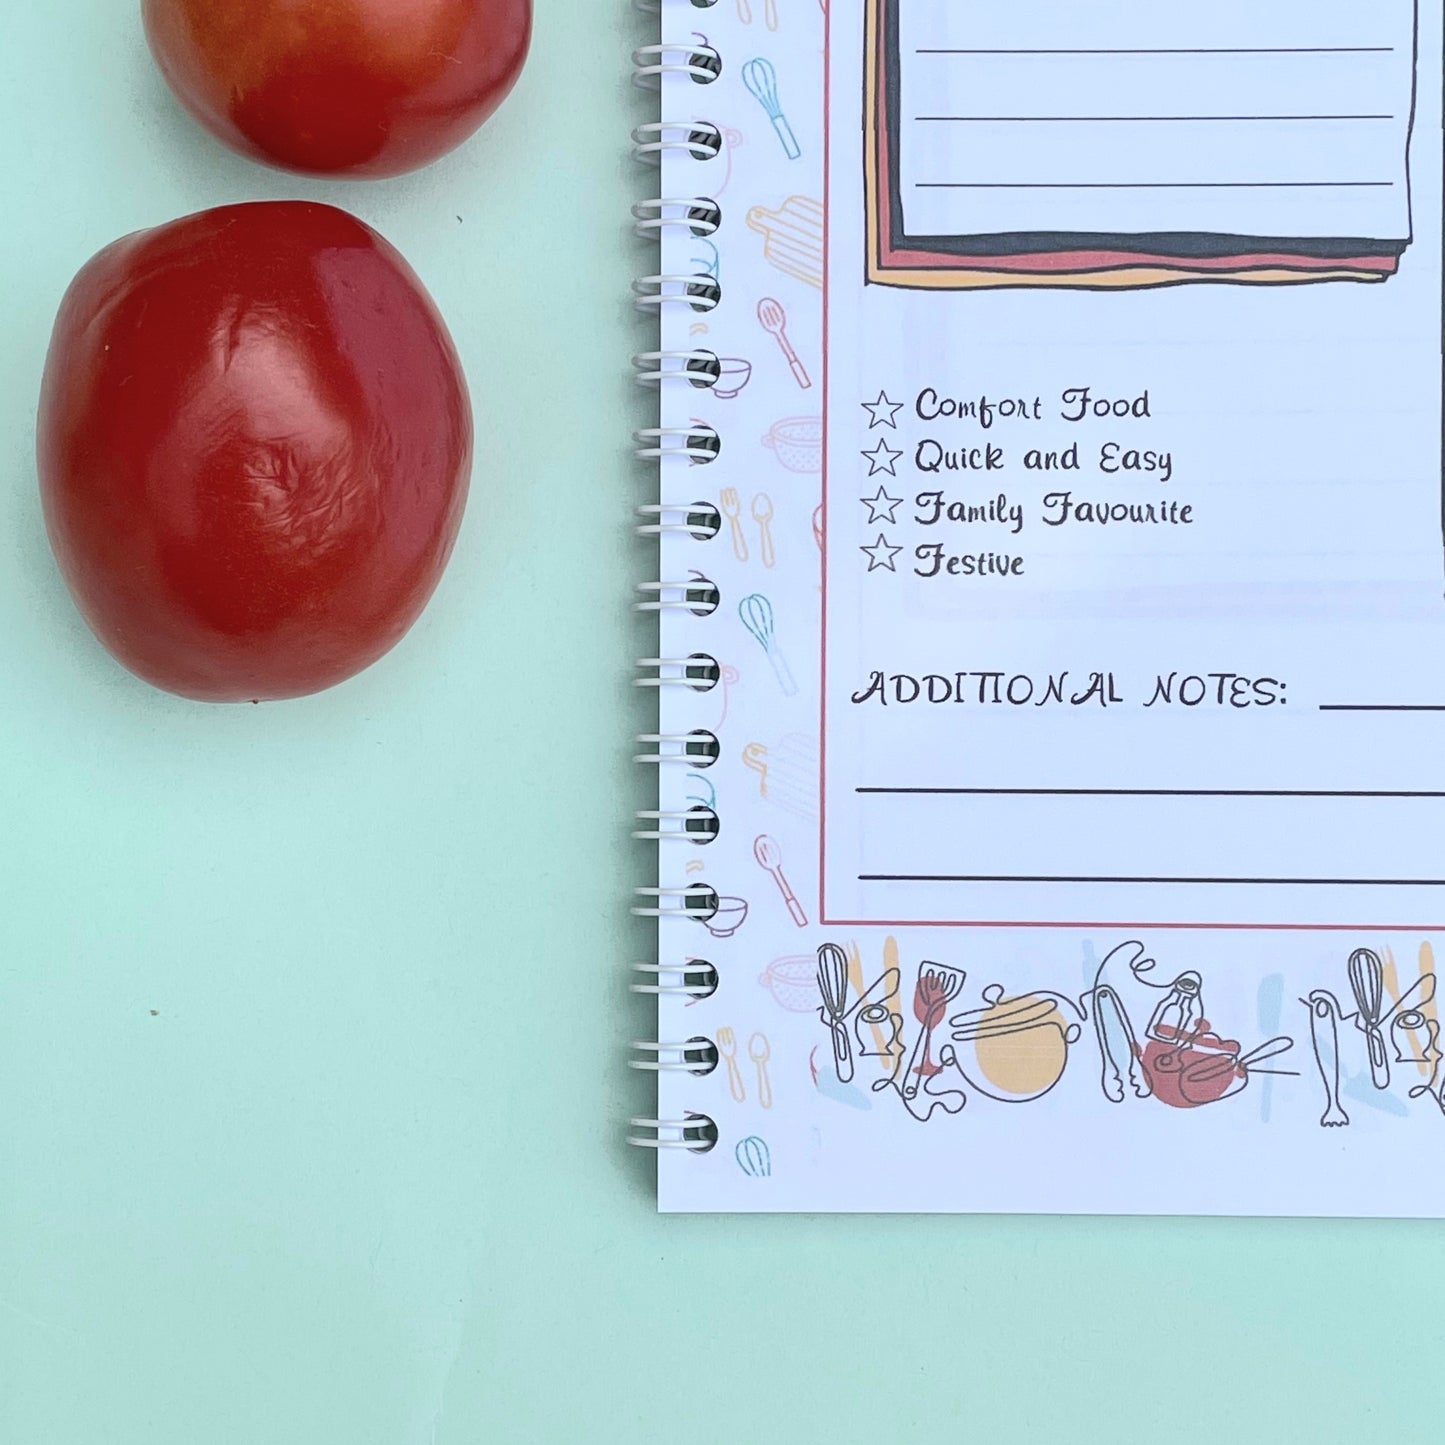 Comfort Food
Quick and Easy
Family Favourite
Festive
ADDITIONAL NOTES: